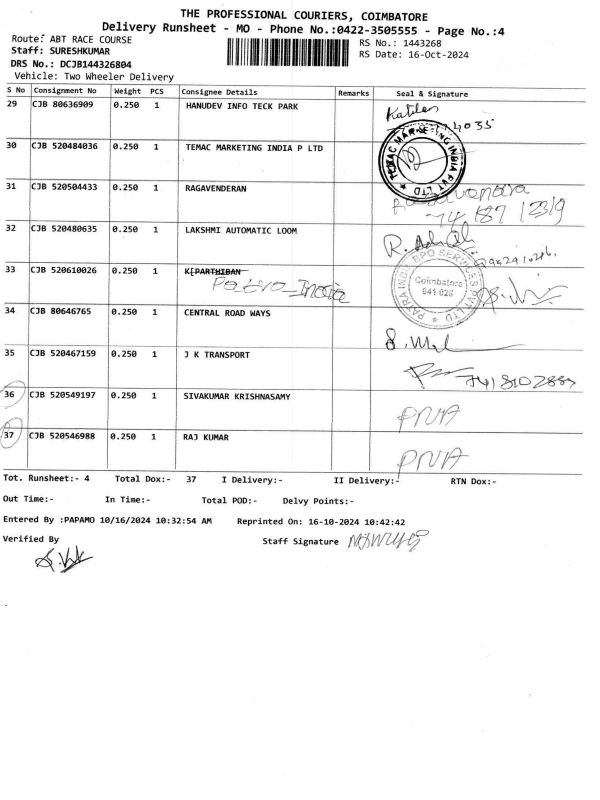 THE PROFESSIONAL COURIERS, COIMBATORE
Delivery Runsheet - MO - Phone No.:0422-3505555 - Page No.:4
Route: ABT RACE COURSE
RS No.: 1443268
Staff: SURESHKUMAR
RS Date: 16-Oct-2024
DRS No.: DCJB144326804
Vehicle: Two Wheeler Delivery
S No Consignment No Weight PCS Consignee Details Remarks Seal & Signature
29 CJB 80636909 0.250 1 HANUDEV INFO TECK PARK
30 CJB 520484036 0.250 1 TEMAC MARKETING INDIA P LTD
TEMAC MARKETING INDIA PVT LTD
31 CJB 520504433 0.250 1 RAGAVENDERAN
32 CJB 520480635 0.250 1 LAKSHMI AUTOMATIC LOOM
33 CJB 520610026 0.250 1 K[PARTHIBAN
Patra India
PATRA INDIA BPO SERVICES PVT LTD
Coimbatore
641 028
34 CJB 80646765 0.250 1 CENTRAL ROAD WAYS
35 CJB 520467159 0.250 1 J K TRANSPORT
36 CJB 520549197 0.250 1 SIVAKUMAR KRISHNASAMY
PNA
37 CJB 520546988 0.250 1 RAJ KUMAR
PNA
Tot. Runsheet:- 4 Total Dox:- 37 I Delivery:- II Delivery:- RTN Dox:-
Out Time:- In Time:- Total POD:- Delvy Points:-
Entered By :PAPAMO 10/16/2024 10:32:54 AM Reprinted On: 16-10-2024 10:42:42
Verified By
Staff Signature